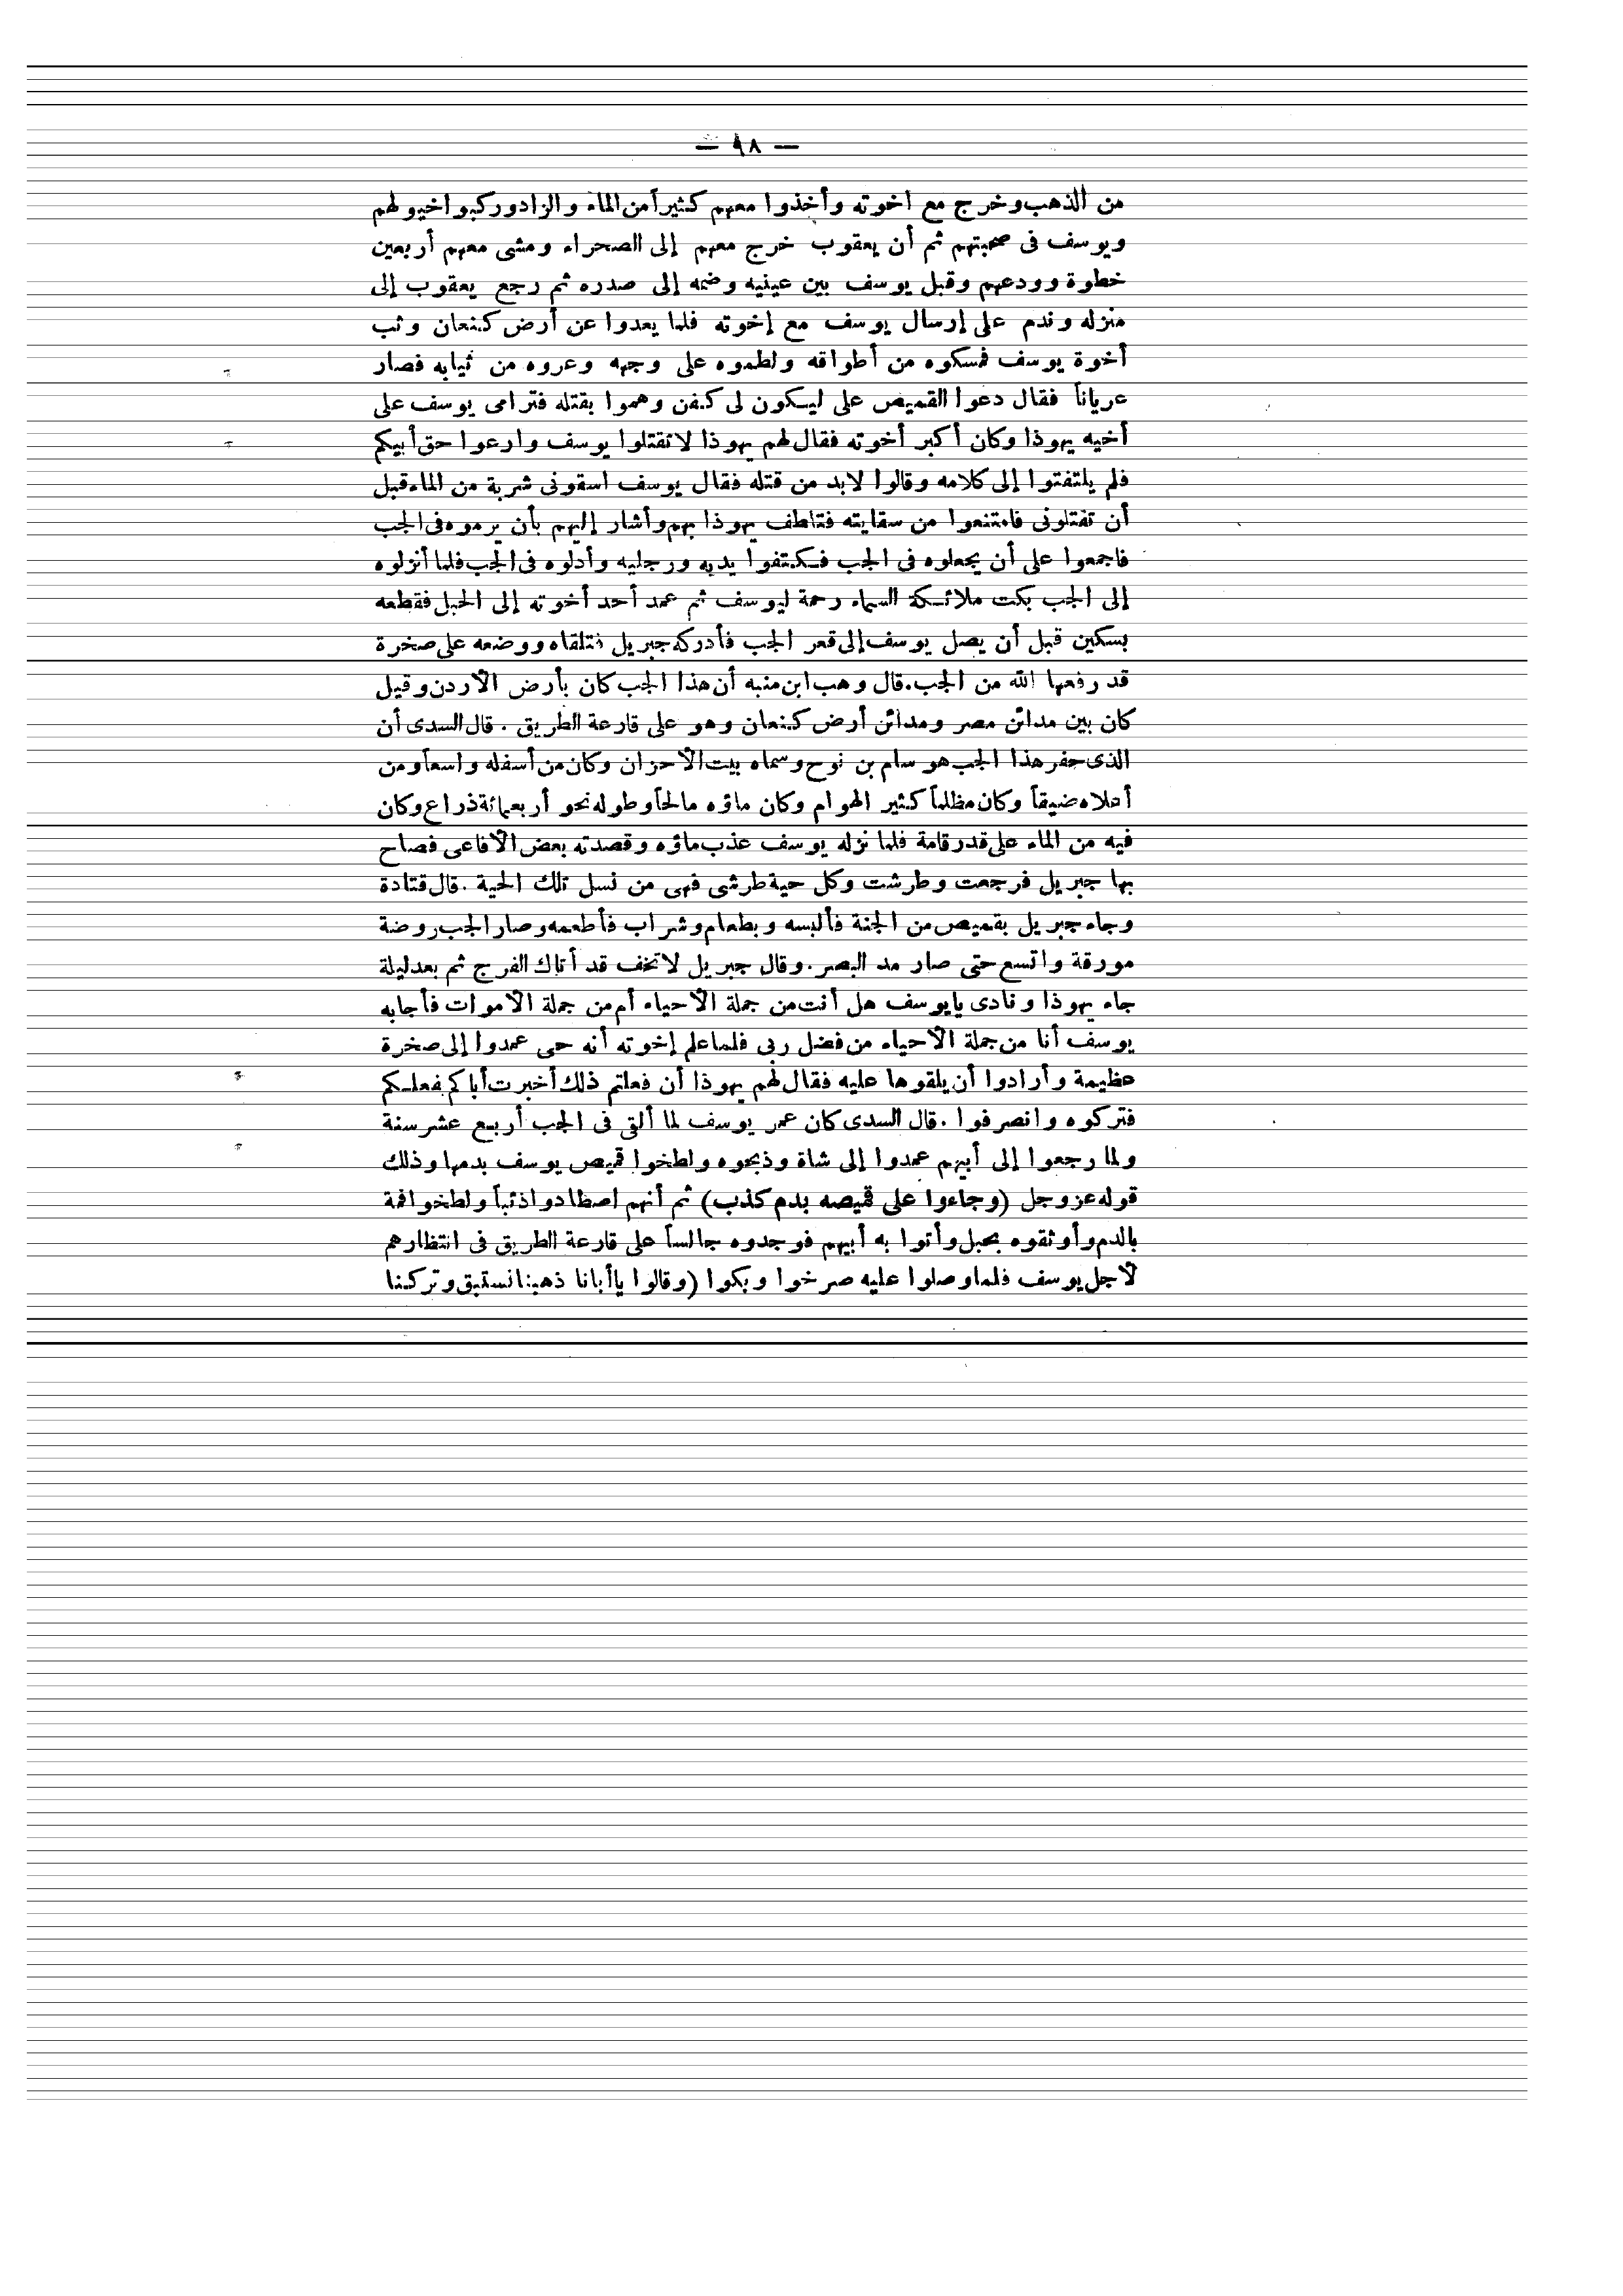 — ٩٨ —
من الذهب وخرج مع اخوته وأخذوا معهم كثيراً من الماء والزاد وركبوا خيولهم
ويوسف فى صحبتهم ثم أن يعقوب خرج معهم إلى الصحراء ومشى معهم أربعين
خطوة وودعهم وقبل يوسف بين عينيه وضمه إلى صدره ثم رجع يعقوب إلى
منزله وندم على إرسال يوسف مع إخوته فلما بعدوا عن أرض كنعان وثب
أخوة يوسف فمسكوه من أطواقه ولطموه على وجهه وعروه من ثيابه فصار
عرياناً فقال دعوا القميص على ليكون لى كفن وهموا بقتله فترامى يوسف على
أخيه يهوذا وكان أكبر أخوته فقال لهم يهوذا لاتقتلوا يوسف وارعوا حق أبيكم
فلم يلتفتوا إلى كلامه وقالوا لابد من قتله فقال يوسف اسقونى شربة من الماء قبل
أن تقتلونى فامتنعوا من سقايته فتلطف يهوذا بهم وأشار إليهم بأن يرموه فى الجب
فاجمعوا على أن يجعلوه فى الجب فكتفوا يديه ورجليه وأدلوه فى الجب فلما أنزلوه
إلى الجب بكت ملائكة السماء رحمة ليوسف ثم عمد أحد أخوته إلى الحبل فقطعه
بسكين قبل أن يصل يوسف إلى قعر الجب فأدركه جبريل فتلقاه ووضعه على صخرة
قد رفعها الله من الجب. قال وهب ابن منبه أن هذا الجب كان بأرض الأردن وقيل
كان بين مدائن مصر ومدائن أرض كنعان وهو على قارعة الطريق . قال السدى أن
الذى حفر هذا الجب هو سام بن نوح وسماه بيت الأحزان وكان من أسفله واسعاً ومن
أعلاه ضيقاً وكان مظلماً كثير الهوام وكان ماؤه مالحاً وطوله نحو أربعمائة ذراع وكان
فيه من الماء على قدر قامة فلما نزله يوسف عذب ماؤه وقصدته بعض الأفاعى فصاح
بها جبريل فرجعت وطرشت وكل حية طرشى فهى من نسل تلك الحية . قال قتادة
وجاء جبريل بقميص من الجنة فألبسه وبطعام وشراب فأطعمه وصار الجب روضة
مورقة واتسع حتى صار مد البصر. وقال جبريل لاتخف قد أتاك الفرج ثم بعد ليلة
جاء يهوذا ونادى يايوسف هل أنت من جملة الأحياء أم من جملة الأموات فأجابه
يوسف أنا من جملة الأحياء من فضل ربى فلما علم إخوته أنه حى عمدوا إلى صخرة
عظيمة وأرادوا أن يلقوها عليه فقال لهم يهوذا أن فعلتم ذلك أخبرت أباكم بفعلكم
فتركوه وانصرفوا . قال السدى كان عمر يوسف لما ألقى فى الجب أربع عشر سنة
ولما رجعوا إلى أبيهم عمدوا إلى شاة وذبحوه ولطخوا قميص يوسف بدمها وذلك
قوله عز وجل (وجاءوا على قميصه بدم كذب) ثم أنهم اصطادوا ذئباً ولطخوا فمه
بالدم وأوثقوه بحبل وأتوا به أبيهم فوجدوه جالساً على قارعة الطريق فى انتظارهم
لأجل يوسف فلما وصلوا عليه صرخوا وبكوا (وقالوا ياأبانا ذهبنا نستبق وتركنا